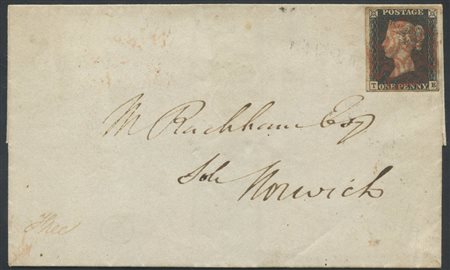 POSTAGE
T ONE PENNY E
M Rackham Esq
Sol^r
Norwich